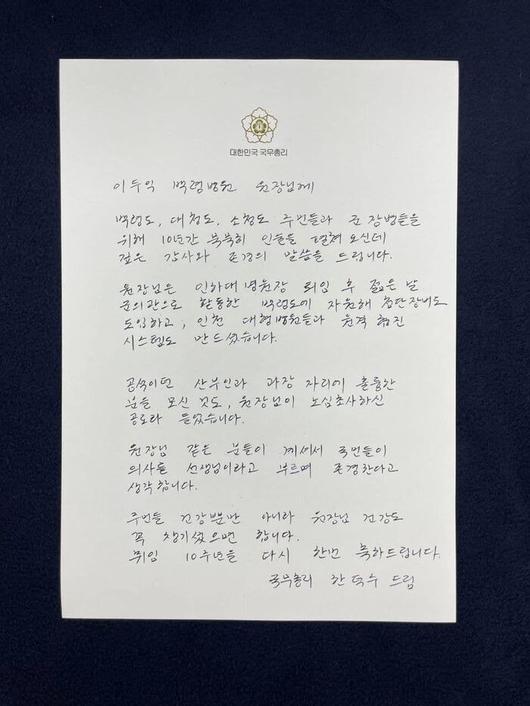 대한민국 국무총리
이두익 백령병원 원장님께
백령도, 대청도, 소청도 주민들과 군 장병들을
위해 10년간 묵묵히 인술을 펼쳐 오신데
깊은 감사와 존경의 말씀을 드립니다.
원장님은 인하대병원장 퇴임 후 젊은 날
군의관으로 활동한 백령도에 자원해 첨단장비도
도입하고, 인천 대형병원들과 원격 협진
시스템도 만드셨습니다.
공석이던 산부인과 과장 자리에 훌륭한
분을 모신 것도, 원장님이 노심초사하신
공로라 들었습니다.
원장님 같은 분들이 계셔서 국민들이
의사를 선생님이라고 부르며 존경한다고
생각합니다.
주민들 건강뿐만 아니라 원장님 건강도
꼭 챙기셨으면 합니다.
취임 10주년을 다시 한번 축하드립니다.
국무총리 한덕수 드림